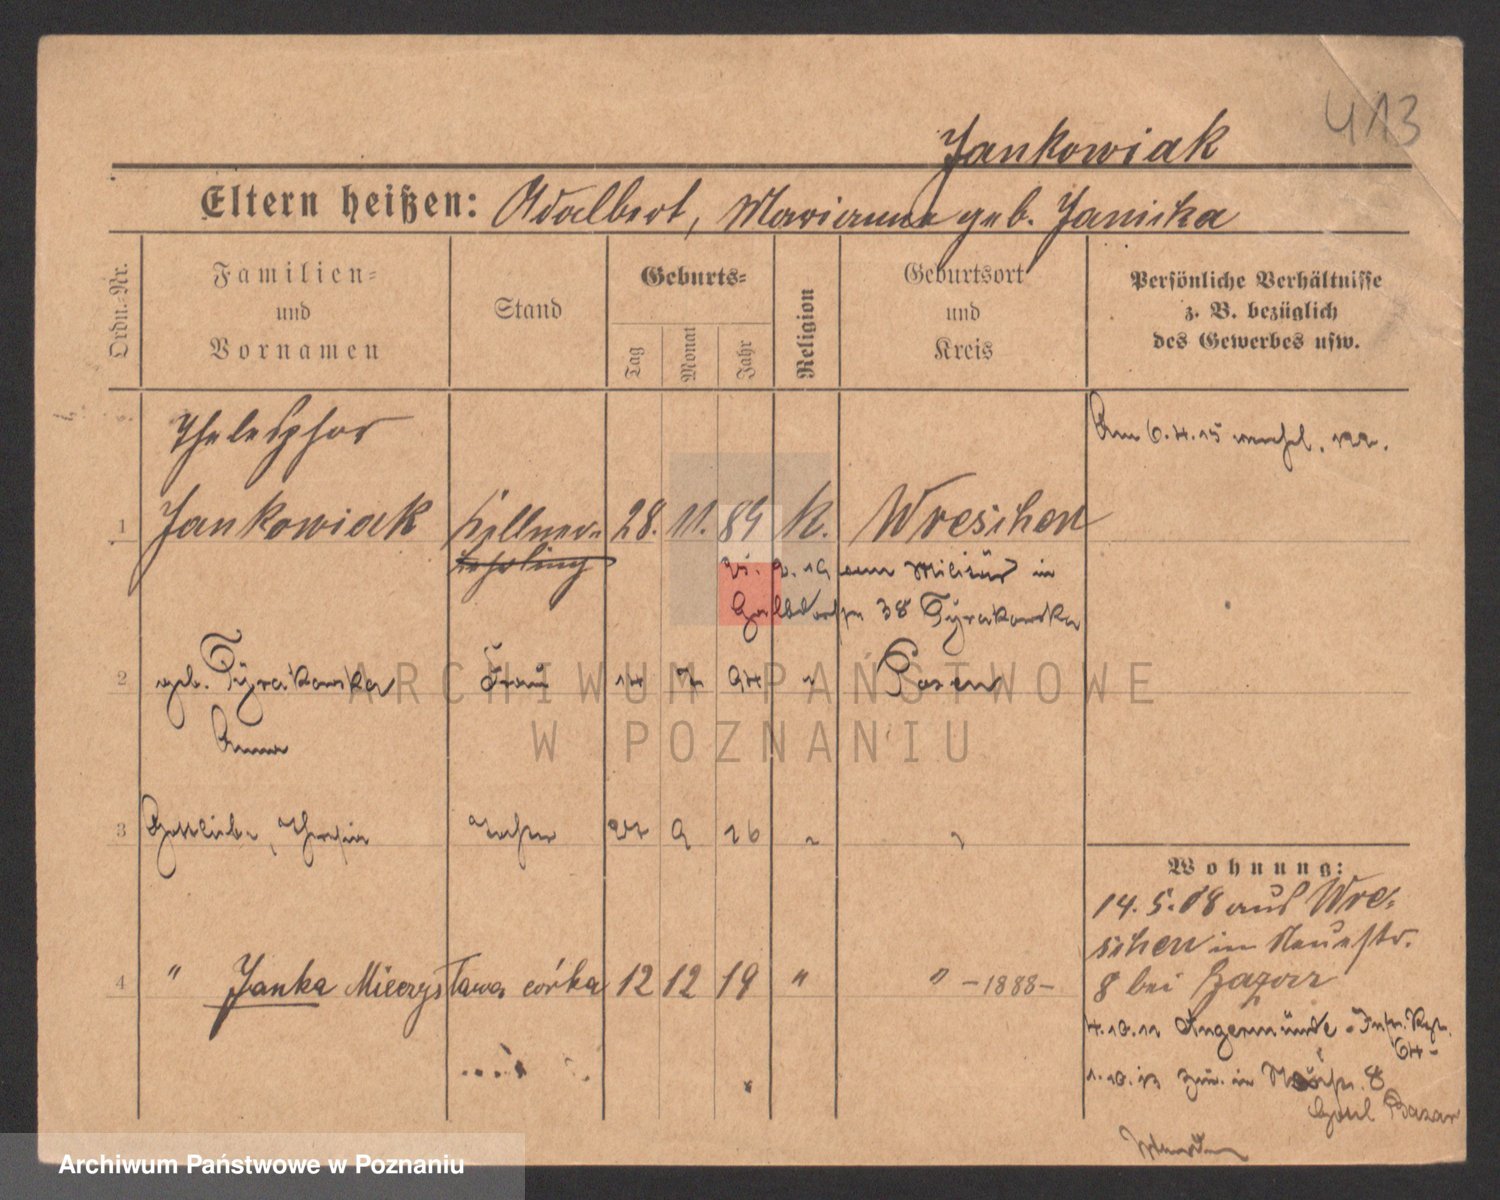 413
Jankowiak
Eltern heißen: Adalbert, Marianna geb. Janicka
Ordn.-Nr.
Familien-
und
Vornamen
Stand
Geburts-
Tag
Monat
Jahr
Religion
Geburtsort
und
Kreis
Persönliche Verhältnisse
z. B. bezüglich
des Gewerbes usw.
Thelesphor
Am 6.4.15
1 Jankowiak Kellner- 28. 11. 89 k. Wreschen
lehrling
2. 19 vom Militär in
38 Tyrakowska
2 geb. Tyrakowska Frau 14 7 94 " Posen
Anna
3 Tochter 9 16 " "
4 " Janka Mieczysława córka 12 12 19 " " -1888-
Wohnung:
14. 5. 08 aus Wre-
schen in Neuestr.
8 bei Bazar
4.10.11 Angermünde - Inf. Rgt.
64 -
1.10.13 zur. in 8
Hotel Bazar
ARCHIWUM PAŃSTWOWE
W POZNANIU
Archiwum Państwowe w Poznaniu